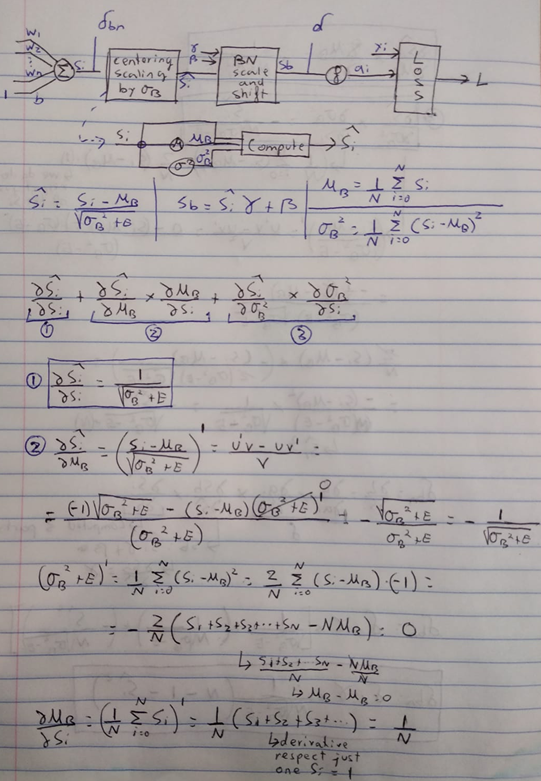 δbn δ
w1
w2
⋮
wn
1 b
Σ Si
centering scaling by σB
γ
β
Ŝi
BN scale and shift
Sb
ai
yi
LOSS
L
Si μB σB² Compute Ŝi
σ²
Ŝi = (Si - μB) / √(σB² + E) | Sb = Ŝi γ + β | μB = 1/N Σ_{i=0}^{N} Si
σB² = 1/N Σ_{i=0}^{N} (Si - μB)²
∂Ŝi/∂Si + ∂Ŝi/∂μB × ∂μB/∂Si + ∂Ŝi/∂σB² × ∂σB²/∂Si
① ② ③
① ∂Ŝi/∂Si = 1/√(σB² + E)
② ∂Ŝi/∂μB = ((Si - μB)/√(σB² + E))' = (u'v - uv')/v =
= ((-1)√(σB² + E) - (Si - μB)(σB² + E)' 0) / (σB² + E) = - √(σB² + E)/(σB² + E) = - 1/√(σB² + E)
(σB² + E)' = 1/N Σ_{i=0}^{N} (Si - μB)² = 2/N Σ_{i=0}^{N} (Si - μB)·(-1) =
= - 2/N (S1 + S2 + S3 + ··· + SN - NμB) = 0
↳ (S1 + S2 + ··· SN)/N - NμB/N
↳ μB - μB = 0
∂μB/∂Si = (1/N Σ_{i=0}^{N} Si)' = 1/N (S1 + S2 + S3 + ···) = 1/N
↳ derivative
respect just
one Si = 1